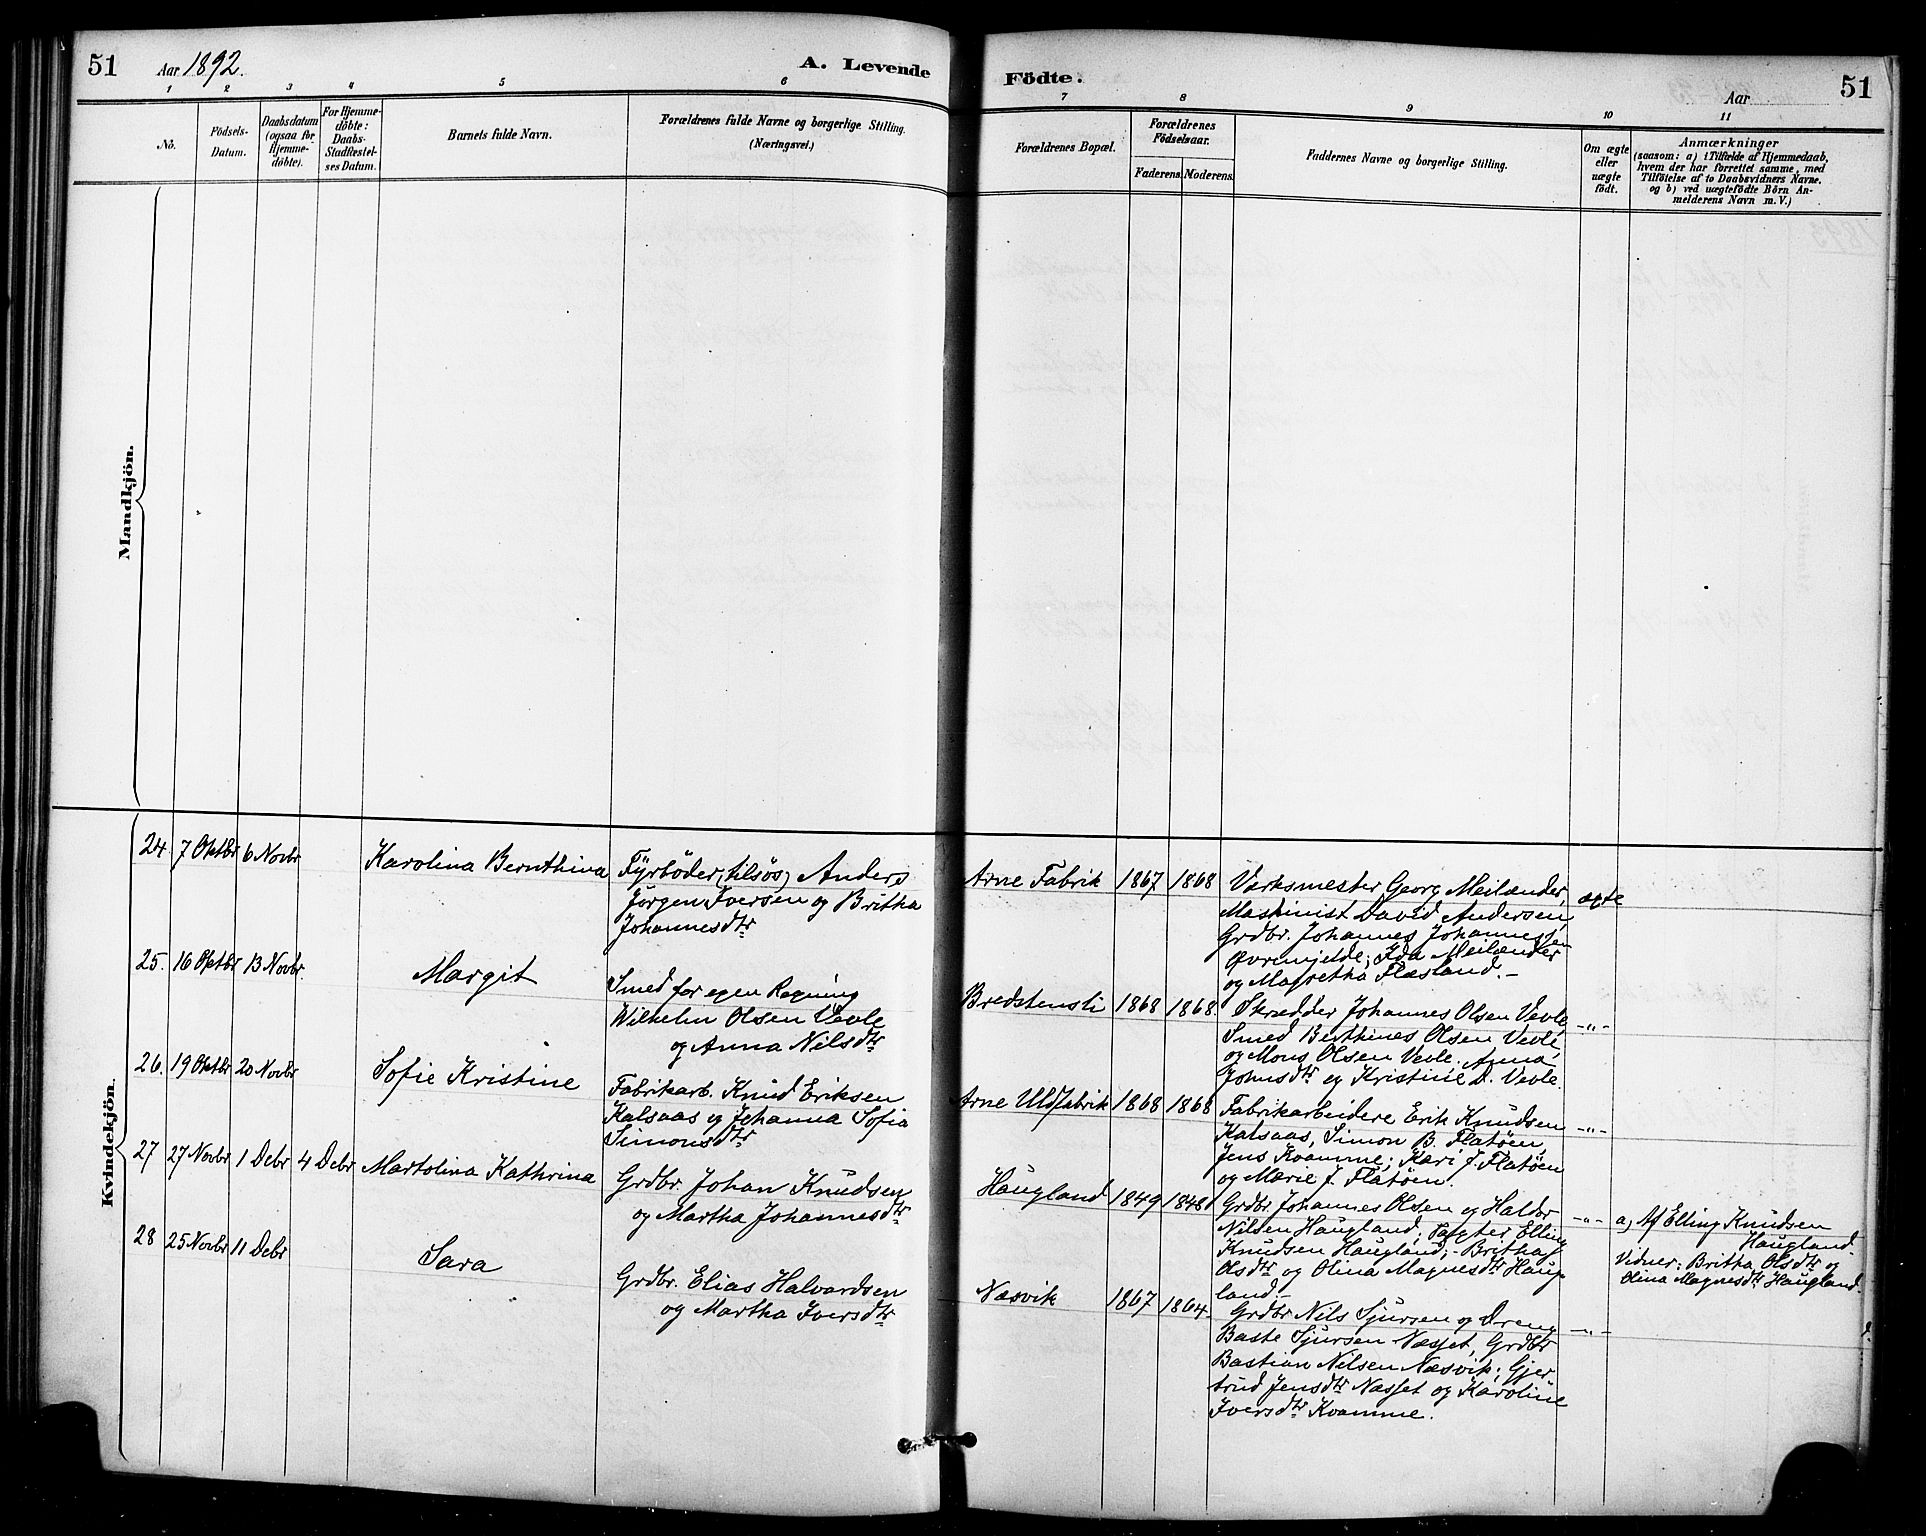 51
Aar 1892.
A. Levende
Födte.
Aar
51
1
2
3
4
5
6
7
8
9
10
11
No.
Födsels-
Datum.
Daabsdatum
(ogsaa for
Hjemme-
döbte).
For Hjemme-
döbte:
Daabs-
Stadfæstel-
ses Datum.
Barnets fulde Navn.
Forældrenes fulde Navne og borgerlige Stilling.
(Næringsvei.)
Forældrenes Bopæl.
Forældrenes
Födselsaar.
Faderens.
Moderens.
Faddernes Navne og borgerlige Stilling.
Om ægte
eller
uægte
födt.
Anmærkninger
(saasom: a) i Tilfælde af Hjemmedaab,
hvem der har forrettet samme, med
Tilföielse af to Daabsvidners Navne.
og b) ved uægtefödte Börn An-
melderens Navn m. V.)
Mandkjön.
Kvindekjön.
24. 7 Oktbr 6 Novbr Karolina Bernthina
Fyrböder (tilsös) Anders
Jörgen Iversen og Britha
Johannesdtr
Arne Fabrik 1867 1868
Værksmester Georg Meilænder,
Maskinist David Andersen,
Grdbr. Johannes Johannessen
Øvremjelde; Ida Meilænder
og Magretha Flæsland.-
ægte
25. 16 Oktbr 13 Novbr. Margit
Smed for egen Regning
Wilhelm Olsen Vevle
og Anna Nilsdtr
Bredstensli 1868 1868.
Skrædder Johannes Olsen Vevle,
Smed Berthines Olsen Vevle
og Mons Olsen Vevle. Anna
Johnsdtr og Kristine D. Vevle.
-"-
26. 19 Oktbr 20 Novbr Sofie Kristine
Fabrikarb. Knud Eriksen
Kalsaas og Johanna Sofia
Simonsdtr
Arne Uldfabrik 1868 1868
Fabrikarbeidere Erik Knudsen
Kalsaas, Simon B. Flatöen,
Jens Kvamme; Kari J. Flatöen
og Marie J. Flatöen.
-"-
27 27 Novbr 1 Debr 4 Debr Martolina Kathrina
Grdbr. Johan Knudsen
og Martha Johannesdtr
Haugland 1849 1848
Grdbr. Johannes Olsen og Haldor
Nilsen Haugland; Elling
Knudsen Haugland;- Britha
Olsdtr og Olina Magnesdtr Haug-
land.-
-"-
a, Af Elling Knudsen
Haugland.
Vidner: Britha Olsdtr og
Olina Magnesdtr Haugland.
28 25 Novbr 11 Debr Sara
Grdbr. Elias Halvardsen
og Martha Iversdtr
Næsvik 1867 1864.
Grdbr Nils Sjursen og Dreng
Baste Sjursen Næsset, Grdbr
Bastian Nilsen Næsvik; Gjer-
trud Jensdtr Næsset og Karoline
Iversdtr Kvamme.
-"-